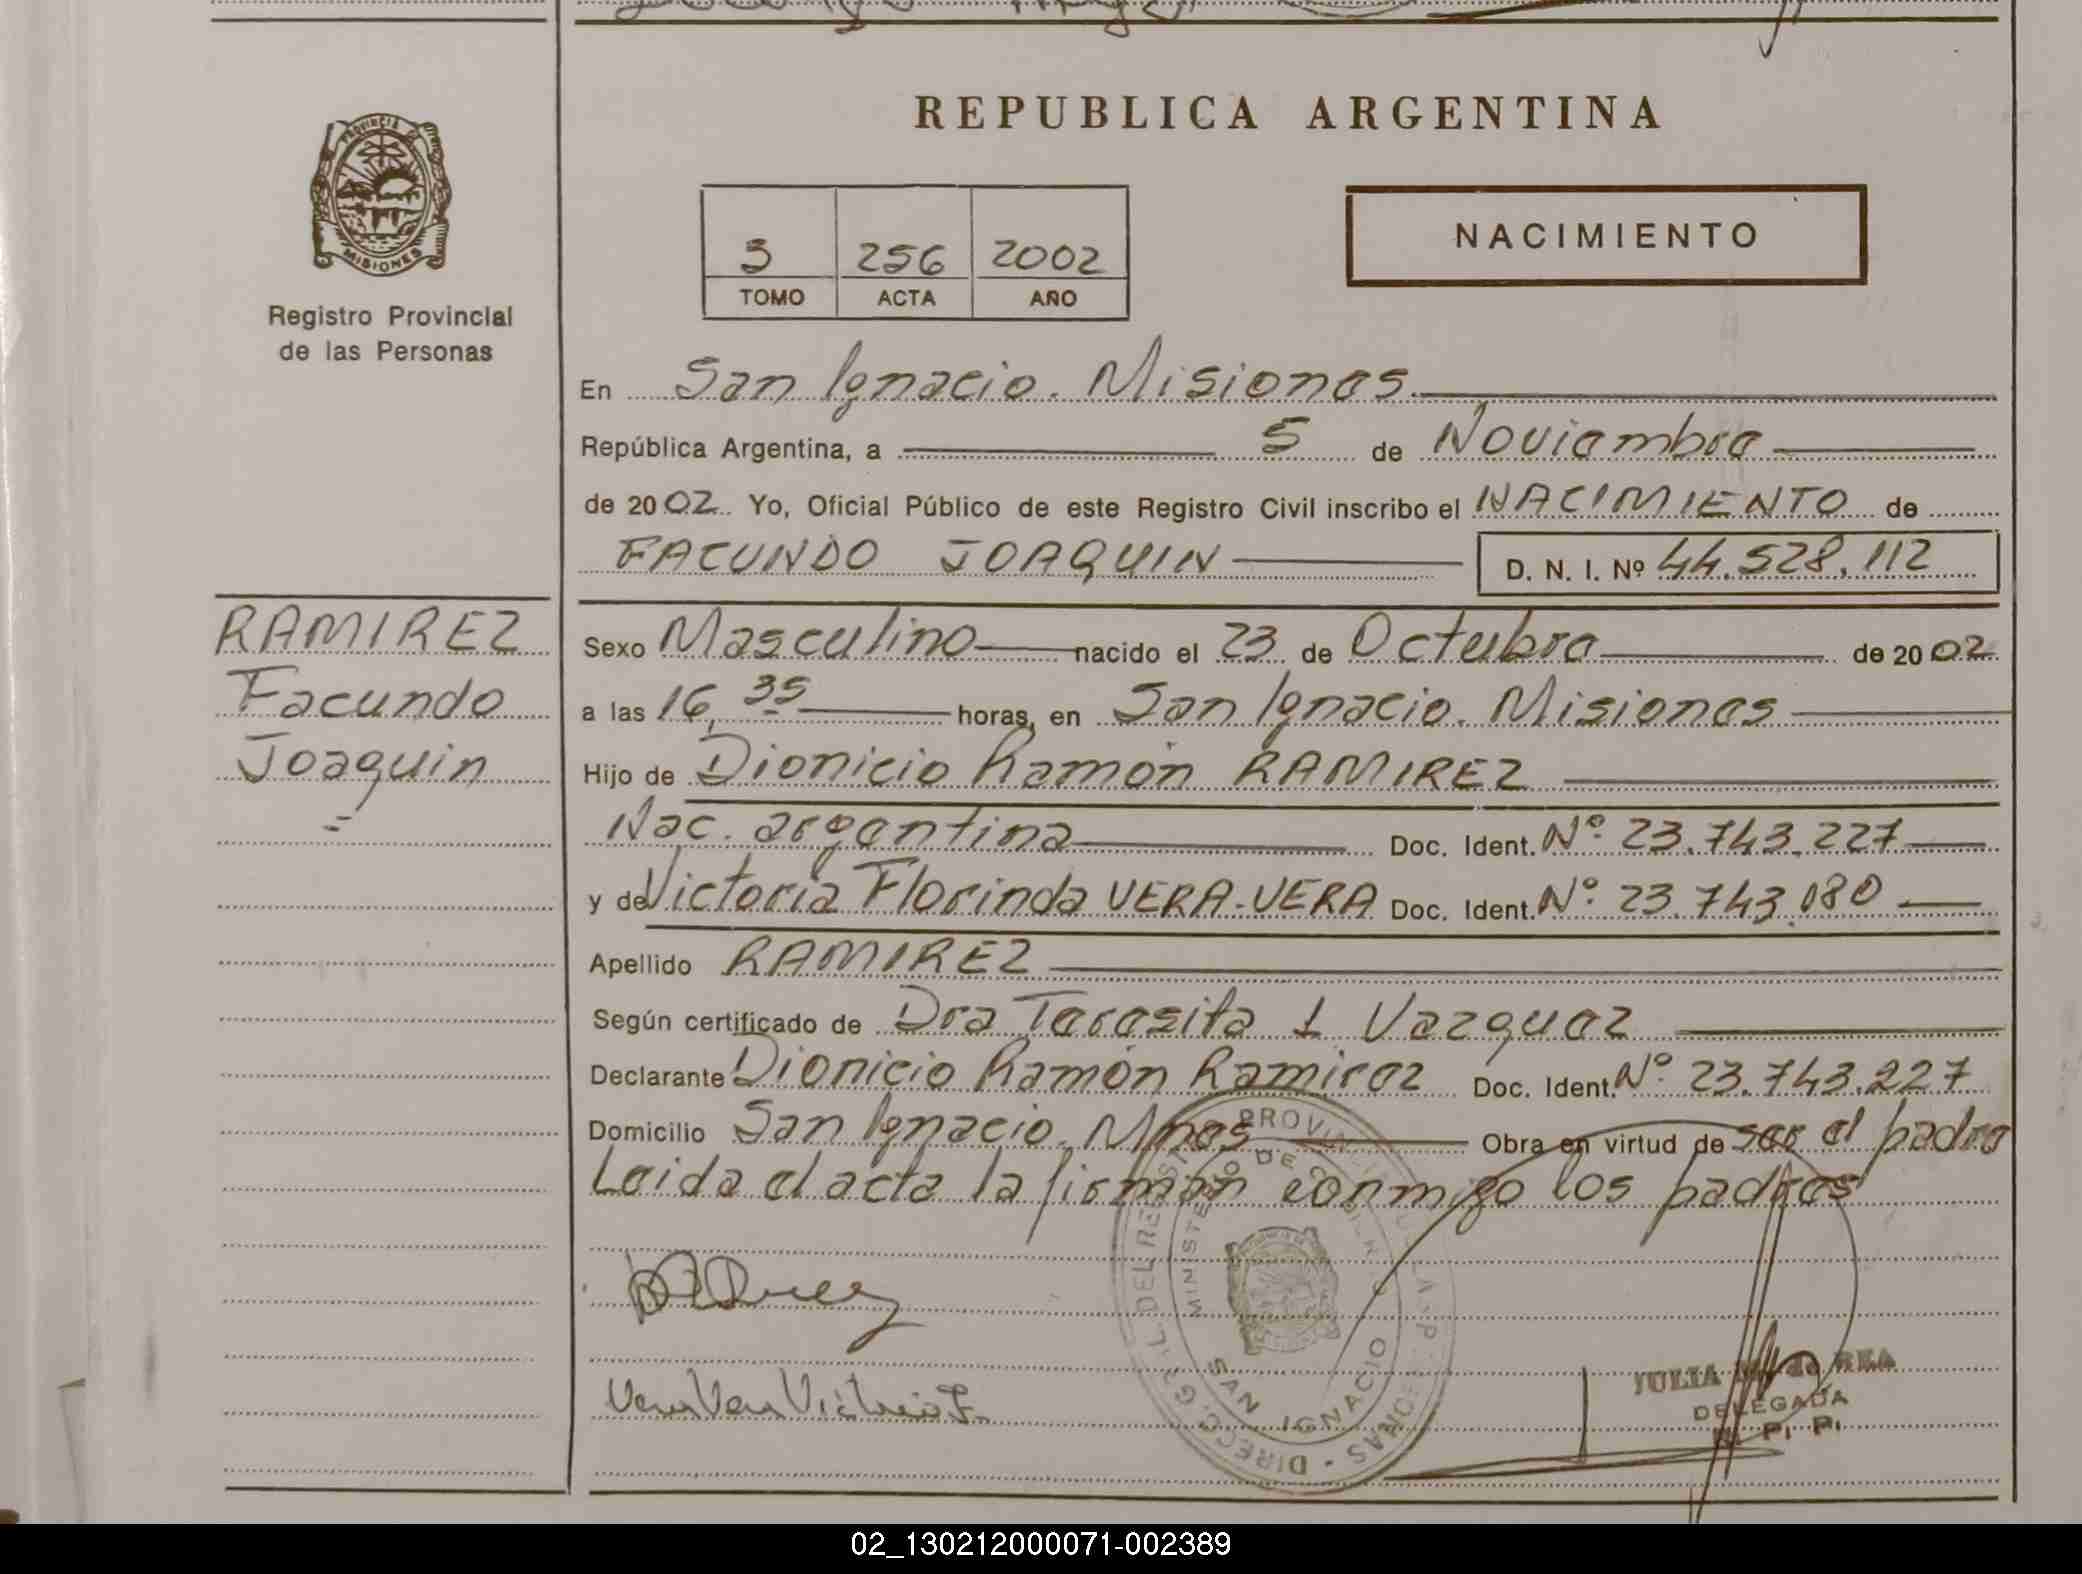 REPUBLICA ARGENTINA
PROVINCIA DE
MISIONES
Registro Provincial
de las Personas
3 256 2002
TOMO ACTA AÑO
NACIMIENTO
En San Ignacio. Misiones
República Argentina, a 5 de Noviembre
de 2002. Yo, Oficial Público de este Registro Civil inscribo el NACIMIENTO de
FACUNDO JOAQUIN D. N. I. Nº 44.528.112
RAMIREZ
Facundo
Joaquin
Sexo Masculino nacido el 23 de Octubre de 2002
a las 16,35 horas, en San Ignacio. Misiones
Hijo de Dionicio Ramón RAMIREZ
Nac. argentina Doc. Ident. Nº 23.743.227
y de Victoria Florinda VERA-VERA Doc. Ident. Nº 23.743.080
Apellido RAMIREZ
Según certificado de Dra Teresita I Vazquez
Declarante Dionicio Ramón Ramirez Doc. Ident. Nº 23.743.227
Domicilio San Ignacio. Mnes Obra en virtud de ser el padre
Leida el acta la firman conmigo los padres
Vera Vera Victoria F.
SAN IGNACIO
JULIA de REA
DELEGADA
02_130212000071-002389